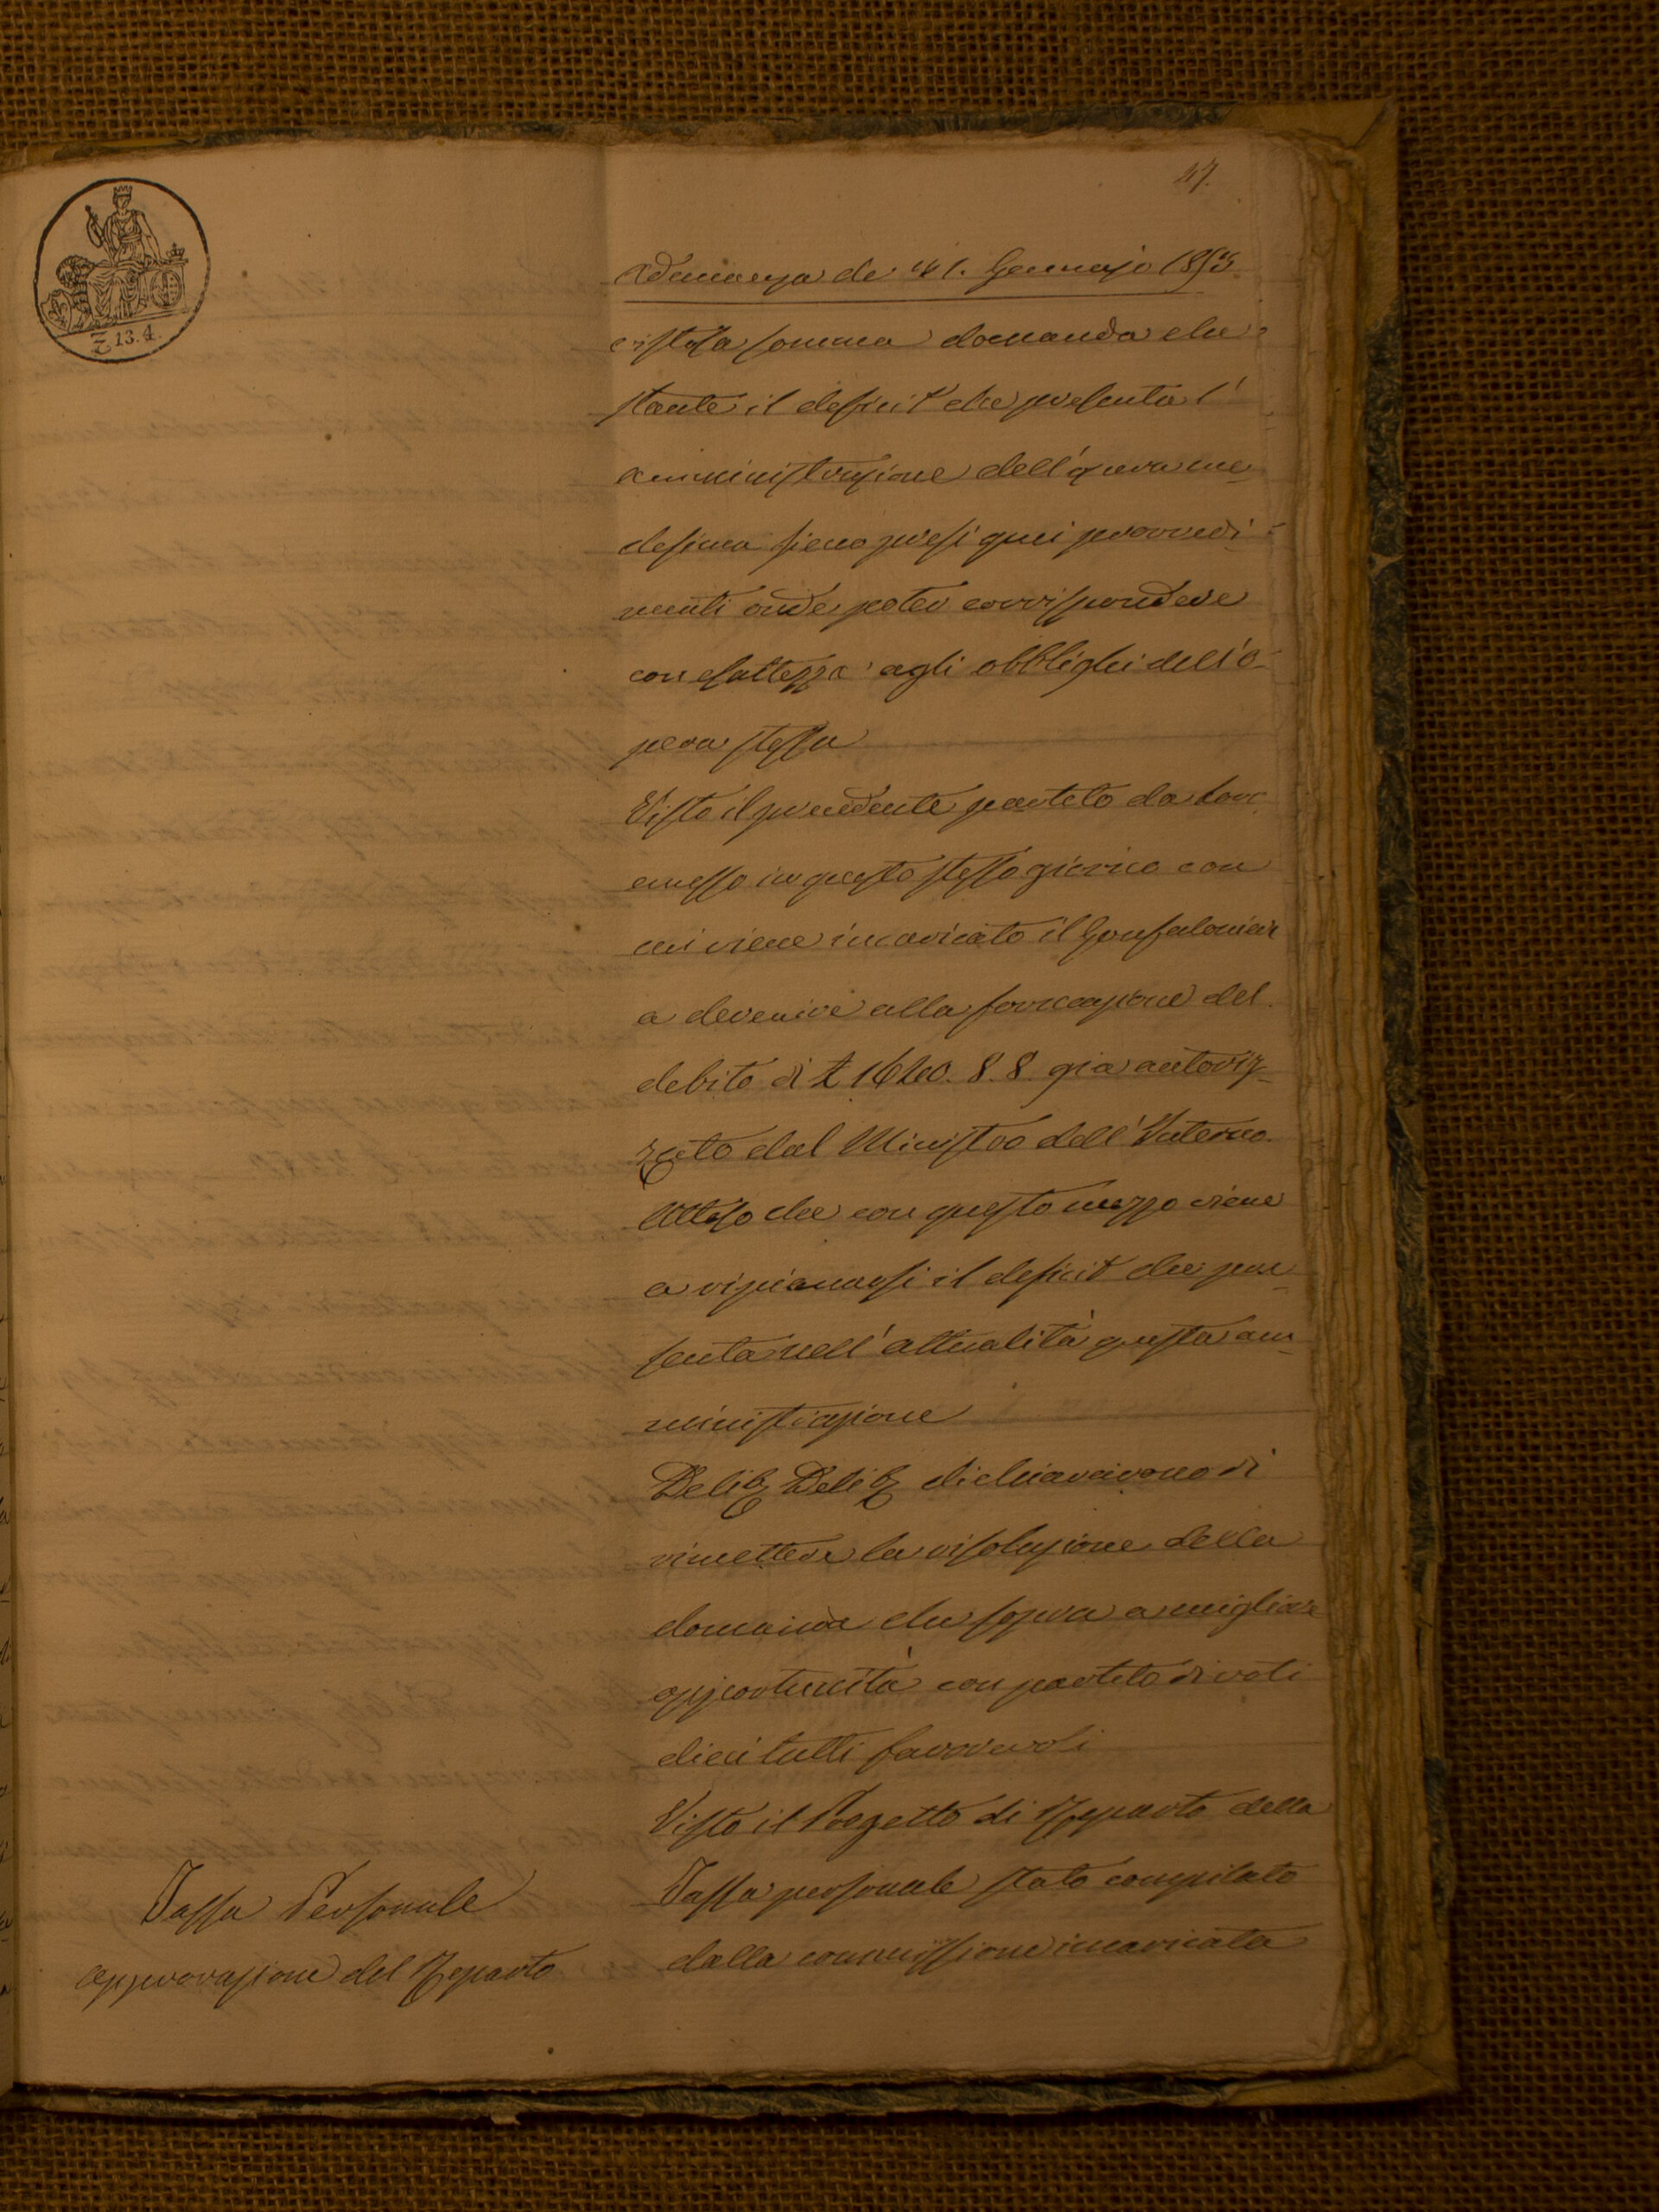 47.
Adunanza de' 31. Gennajo 1853
vistosa somma domanda che
stante il deficit che presenta l'
amministrazione dell'opera me-
desima sieno presi quei provvedi-
menti onde poter corrispondere
con esattezza agli obblighi dell'o-
pera stessa
Visto il precedente partito da loro
emesso in questo stesso giorno con
cui viene incaricato il Gonfaloniere
a devenire alla formazione del
debito di £ 8. 8. già autoriz-
zato dal Ministro dell'Interno
Atteso che con questo mezzo viene
a ripianarsi il deficit che pre-
senta nell'attualità questa am-
ministrazione
Delib Delib dichiararono di
rimettere la risoluzione della
domanda che sopra a migliore
opportunità con partito di voti
dieci tutti favorevoli
Visto il Progetto di Reparto della
Tassa personale stato compilato
dalla commissione incaricata
Tassa Personale
approvazione del Reparto
13.4.